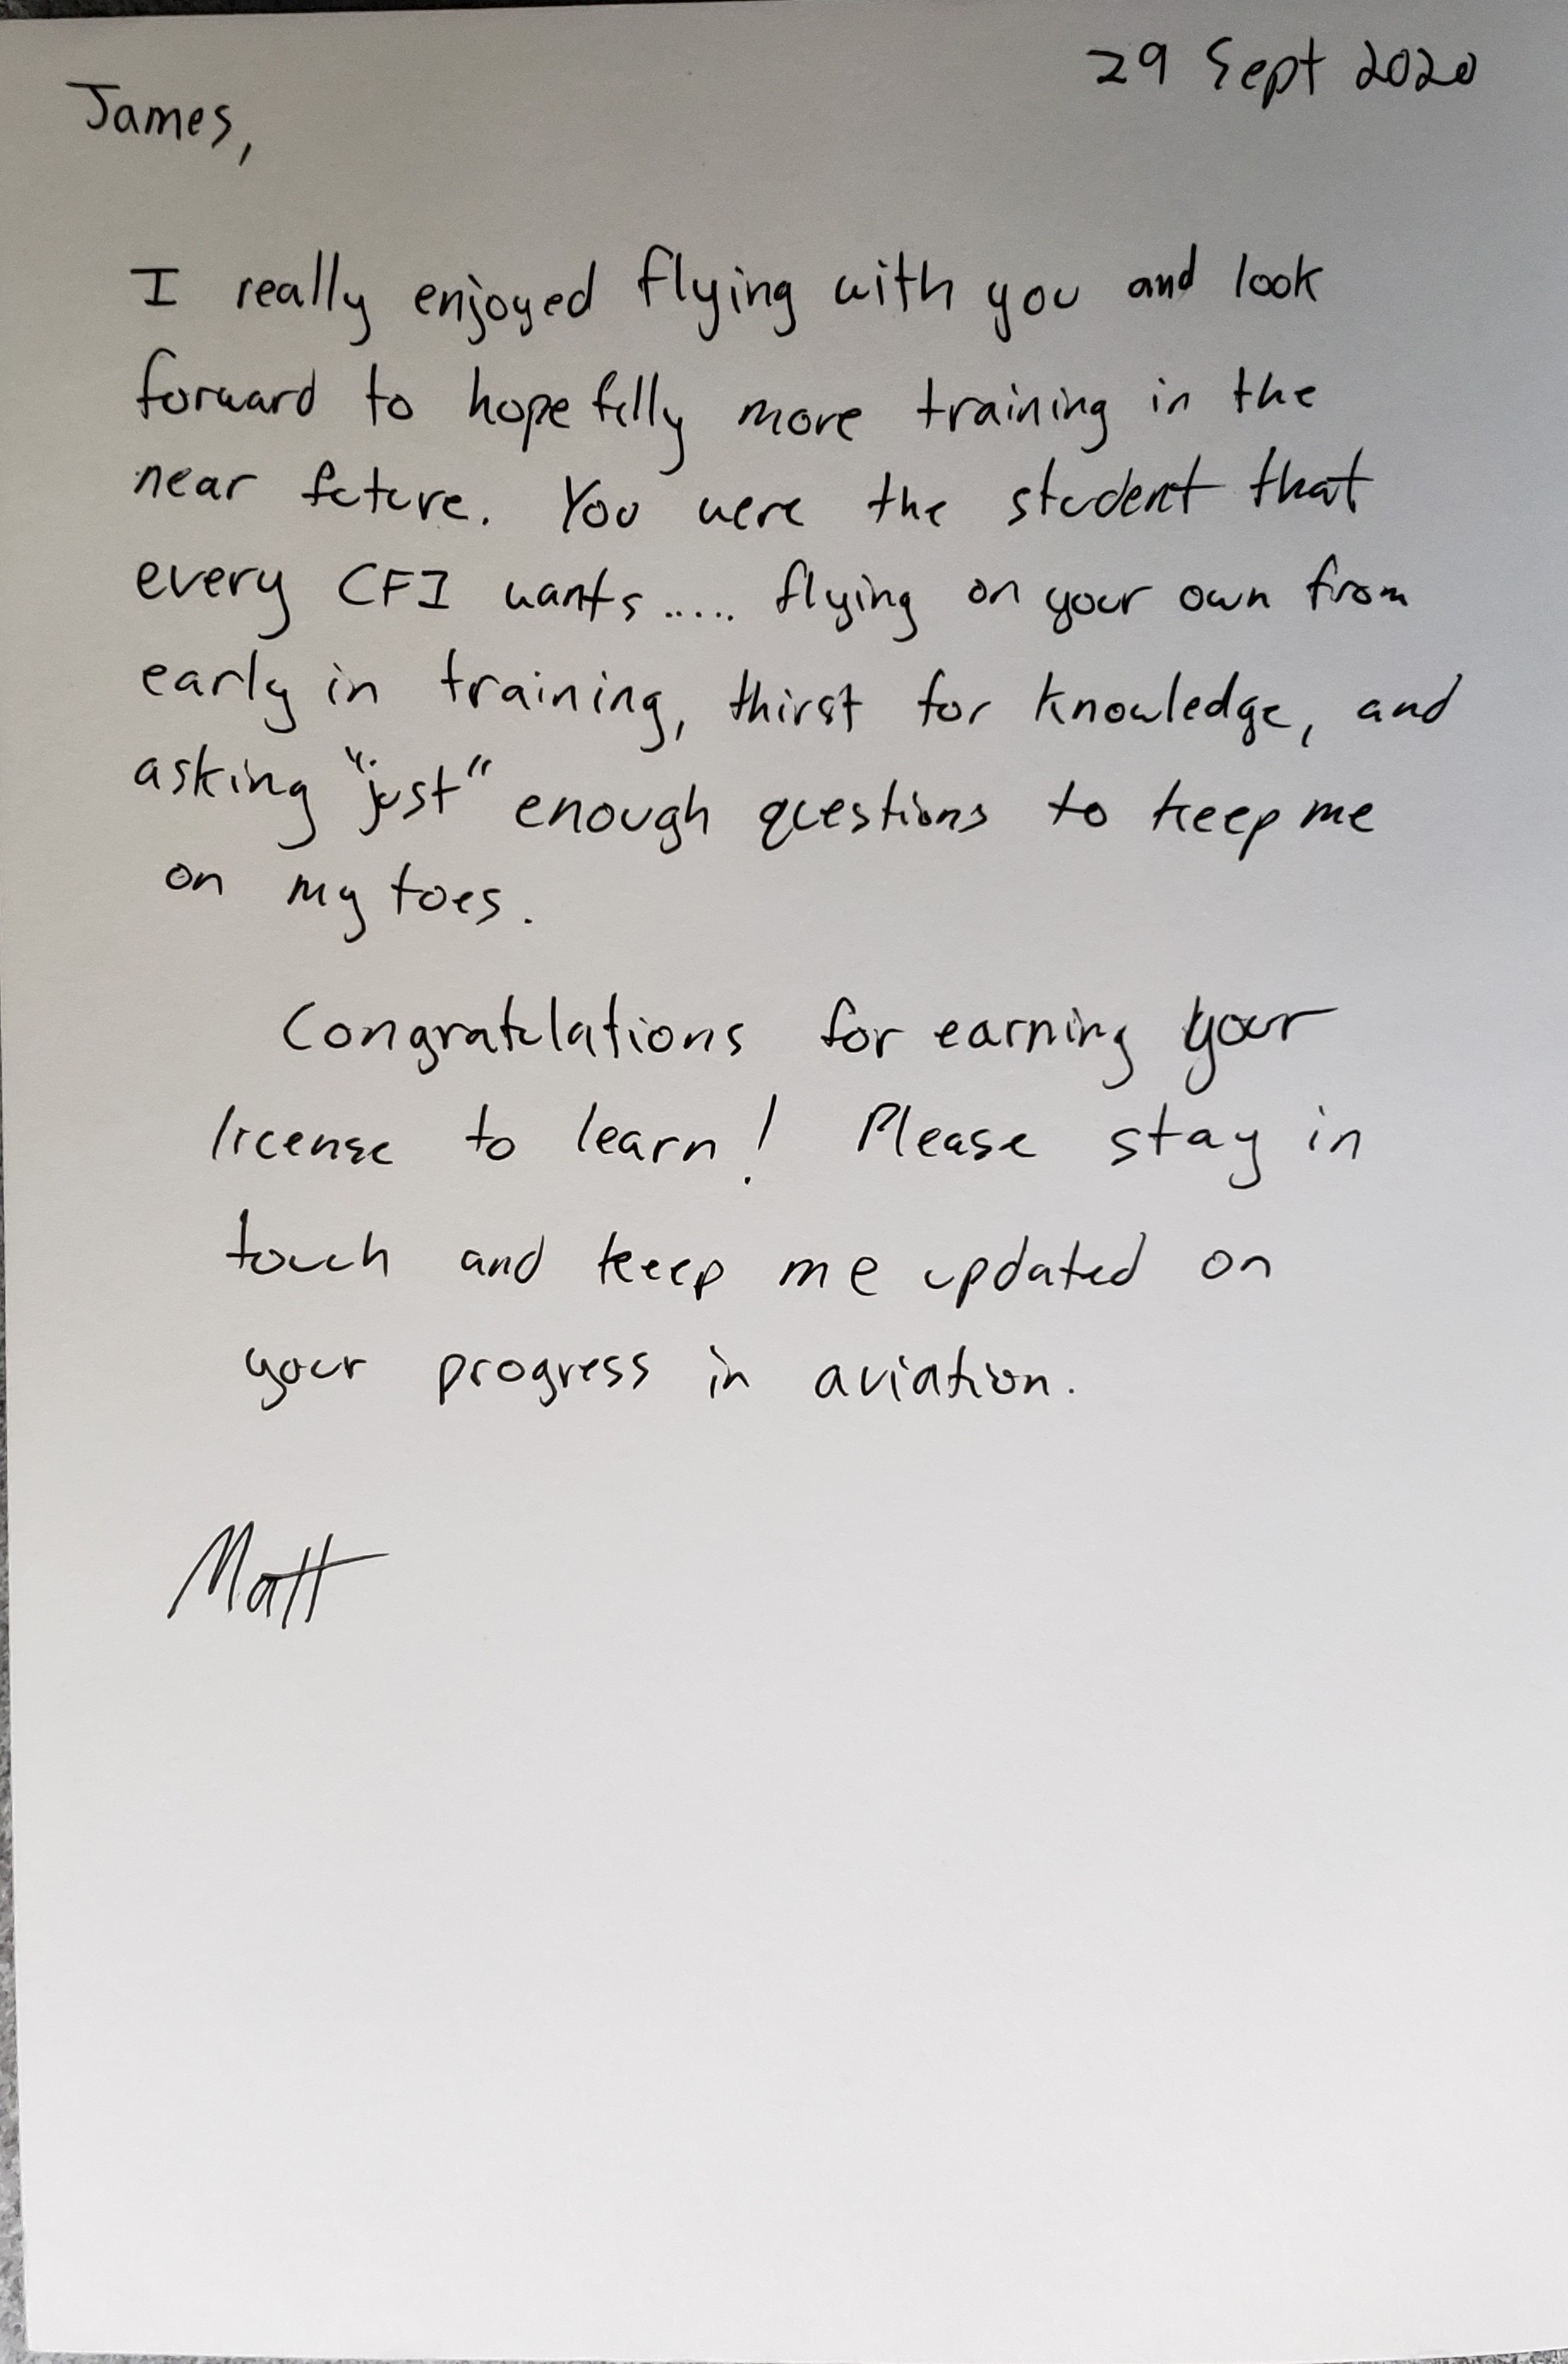 29 Sept 2020
James,
I really enjoyed flying with you and look
forward to hopefully more training in the
near future. You were the student that
every CFI wants..... flying on your own from
early in training, thirst for knowledge, and
asking "just" enough questions to keep me
on my toes.
Congratulations for earning your
license to learn! Please stay in
touch and keep me updated on
your progress in aviation.
Matt